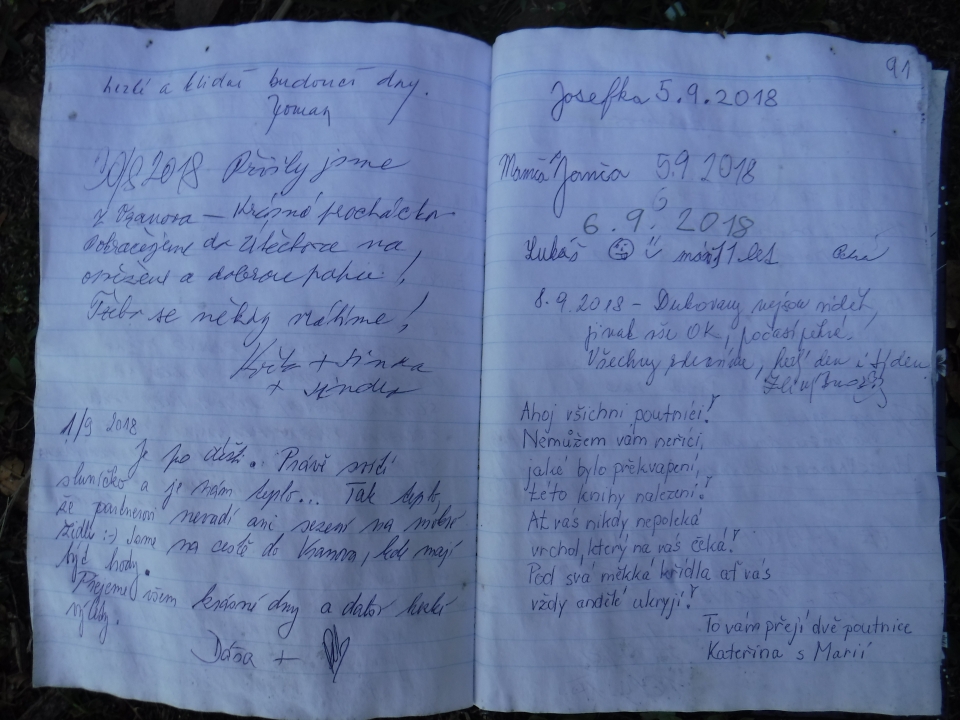 hezké a klidné budoucí dny.
Roman
30/8 2018 Přišly jsme
z – Krásná procházka
Pokračujeme do Útěchova na
a dobrou papu!
Třeba se někdy vrátíme!
+ Jinka
+
1/9 2018
Je po dešti.. Právě svítí
sluníčko a je nám teplo... Tak teplo,
že partnerovi nevadí ani sezení na mokré
židli :-) Jsme na cestě do Vranova, kde mají
být hody.
Přejeme všem krásné dny a dobré
výlety.
Dáša +
91
Josefka 5.9.2018
Mamča Janča 5.9 2018
6.9. 2018
Lukáš 11 let
8.9.2018 – Dukovany nejsou vidět,
jinak vše OK, počasí pěkné.
Všechny zdravíme, hezký den i týden
Ahoj všichni poutníci!
Nemůžem vám neříci,
jaké bylo překvapení,
této knihy nalezení!
Ať vás nikdy nepoleká
vrchol, který na vás čeká!
Pod svá měkká křídla ať vás
vždy andělé ukryjí!
To vám přejí dvě poutnice
Kateřina s Marií